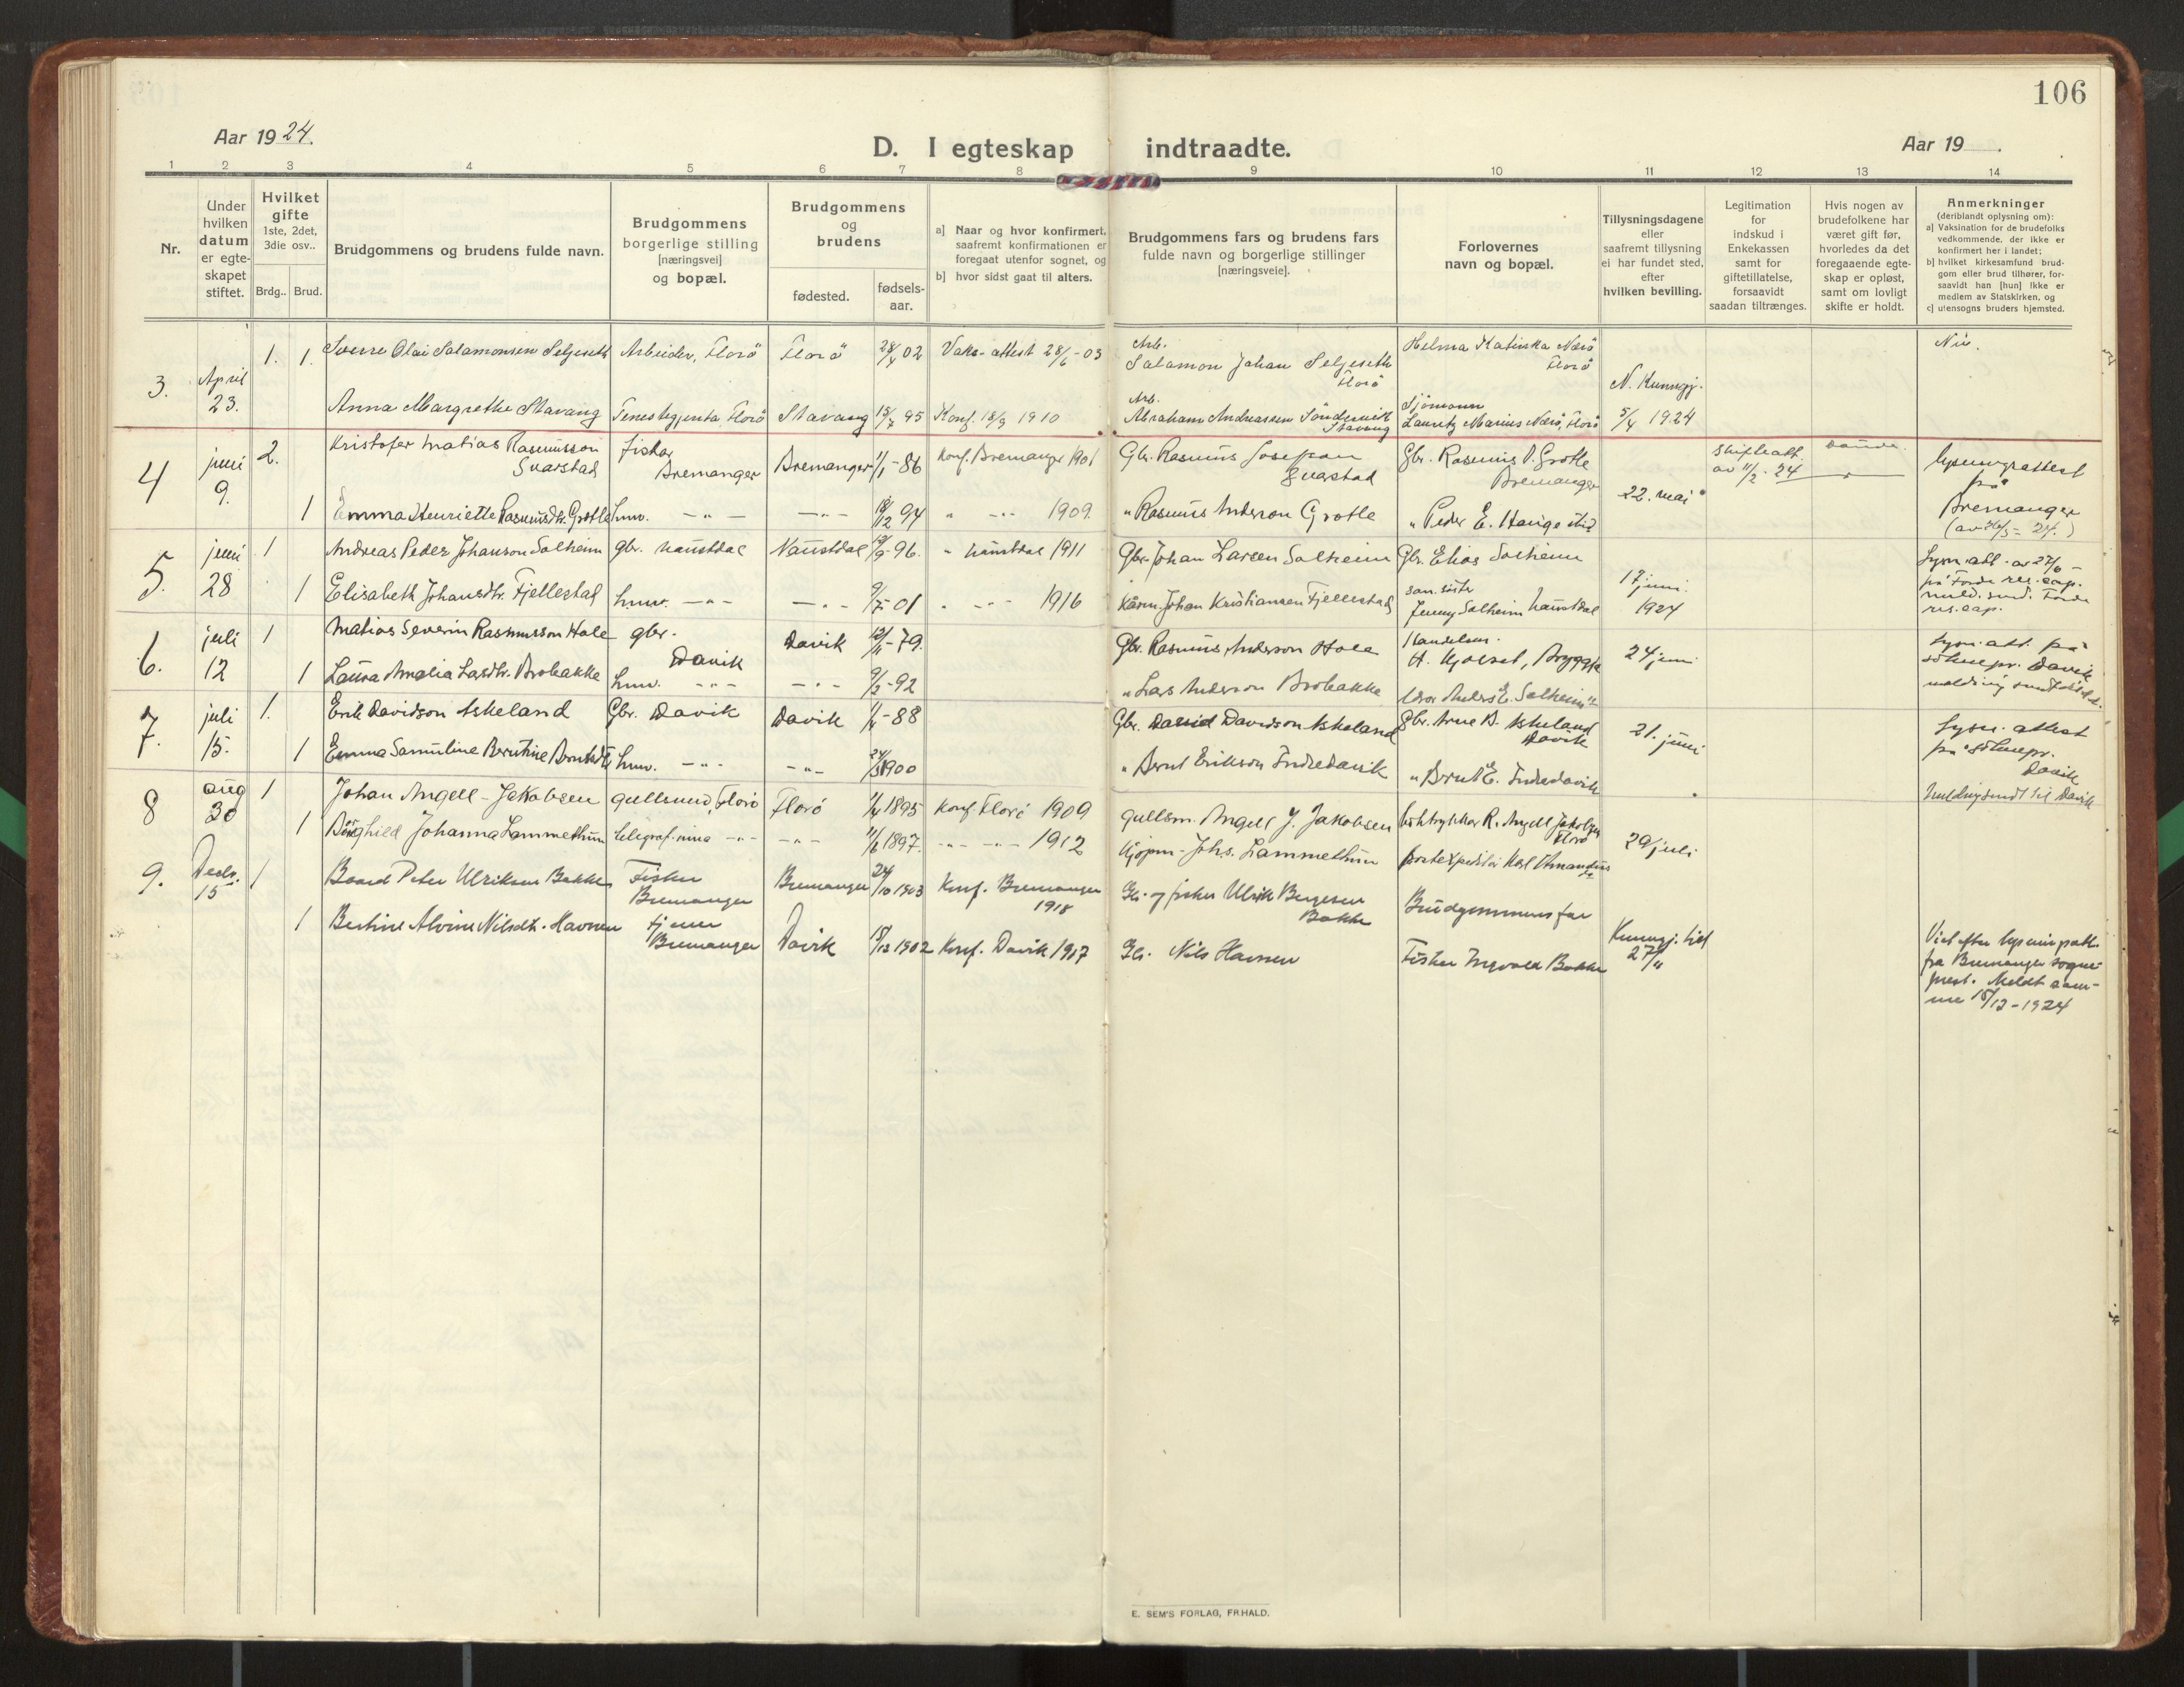 106
Aar 1924.
D. I egteskap indtraadte.
Aar 19 .
1 2 3 4 5 6 7 8 9 10 11 12 13 14
Nr.
Under
hvilken
datum
er egte-
skapet
stiftet.
Hvilket
gifte
1ste, 2det,
3die osv..
Brdg.. Brud.
Brudgommens og brudens fulde navn.
Brudgommens
borgerlige stilling
[næringsvei]
og bopæl.
Brudgommens
og
brudens
fødested.
fødsels-
aar.
a] Naar og hvor konfirmert,
saafremt konfirmationen er
foregaat utenfor sognet, og
b] hvor sidst gaat til alters.
Brudgommens fars og brudens fars
fulde navn og borgerlige stillinger
[næringsveie].
Forlovernes
navn og bopæl.
Tillysningsdagene
eller
saafremt tillysning
ei har fundet sted,
efter
hvilken bevilling.
Legitimation
for
indskud i
Enkekassen
samt for
giftetillatelse,
forsaavidt
saadan tiltrænges.
Hvis nogen av
brudefolkene har
været gift før,
hvorledes da det
foregaaende egte-
skap er opløst,
samt om lovligt
skifte er holdt.
Anmerkninger
(deriblandt oplysning om):
a] Vaksination for de brudefolks
vedkommende, der ikke er
konfirmert her i landet;
b] hvilket kirkesamfund brud-
gom eller brud tilhører, for-
saavidt han [hun] ikke er
medlem av Statskirken, og
c] utensogns bruders hjemsted.
3. April 23. 1. 1.
Sverre Olai Salamonsen Seljeseth Arbeider, Florö Florö 28/4 02 Vaks.-attest 28/6-03
Arb.
Salamon Johan Seljeseth
Florö
Helma Katinka Nærö
Florö
Anna Margrethe Stavang Tenestegjenta, Florö Stavang 15/7 95 Konf. 18/9 1910
Arb.
Abraham Andreassen
Stavang
Sjömann
Lauritz Marius Nærö, Florö
N. Kunngj.
5/4 1924
4 juni 9. 2.
Kristofer Matias Rasmusson
Svarstad
fiskar
Bremanger Bremanger 1/1-86 Konf. Bremanger 1901
Gbr. Rasmus Josefson
Svarstad
Gbr. Rasmus P. Grotle
Bremanger
22. mai
skifteatt.
av 11/2-24
lysningsattest
frå
Bremanger
1 Emma Henriette Rasmusdtr. Grotle hmv. -"- -"- 18/12 94 " -"- 1909.
" Rasmus Anderson Grotle
" Peder E. Hauge
5. juni 28 1
Andreas Peder Johanson Solheim gbr. Naustdal Naustdal 96. " Naustdal 1911
Gbr. Johan Larsen Solheim
Gbr. Elias Solheim
17 juni.
1924
Lysn.att. av 27/6 -
på Førde res.cap.
meld. send. Førde
res.cap.
1 Elisabeth Johansdtr. Fjellestad hmv. -"- -"- 9/5-01 " -"- 1916
Johan Kristiansen Fjellestad
san.sister
Jenny Solheim Naustdal
6. juli 12 1
Matias Severin Rasmusson Hole gbr.
Davik Davik -79.
Gbr. Rasmus Anderson Hole
Handelsm.
H. Kjølset, Bryggja
24 juni
Lysn.att. frå
soknepr. Davik
1 Laura Amalia Lasdtr. Brobakke hmv. -"- -"- 9/2-92
" Lars Anderson Brobakke
lærar Anders E. Solheim
7. juli 15. 1.
Erik Davidson Askeland Gbr. Davik Davik 1/4-88
Gbr. David Davidson Askeland
Gbr. Arne D. Askeland
Davik
21. juni
Lysn. attest
frå soknepr.
Davik
Melding sendt til Davik
1 Emma Samuline Berntine Berntsdtr hmv. -"- -"- 1900
" Bernt Erikson Indredavik
" Bernt E. Indredavik
8 aug 30 1
Johan Angell-Jakobsen gullsmed, Florö Florö 1/4 1895 Konf. Florö 1909
gullsm. Angell J. Jakobsen
boktrykkar R. Angell Jakobsen
Florö
29 juli
1 Borghild Johanna Lammethun telegraf.-inna -"- -"- 11/6 1897. -"- -"- 1912
Kjøpm. Johs. Lammethun
postekspeditør Karl Amandus
9. Decbr. 15 1
Baard Peter Ulriksen Bakke Fisker
Bremanger Bremanger 24/10 1903 Konf. Bremanger
1918
Gbr. og fisker Ulrik Bergesen
Bakke
Brudgommens far
1 Bertine Alvine Nilsdt. Havnen tjener
Bremanger Davik 15/12 1902 Konf. Davik 1917
Gbr. Nils Havnen
Fisker Ingvald Bakke
Kunngj. tid
27/11
Viet efter lysningsatt.
fra Bremanger sogne-
prest. Meldt sam-
me 15/12-1924
E. SEM'S FORLAG, FR.HALD.